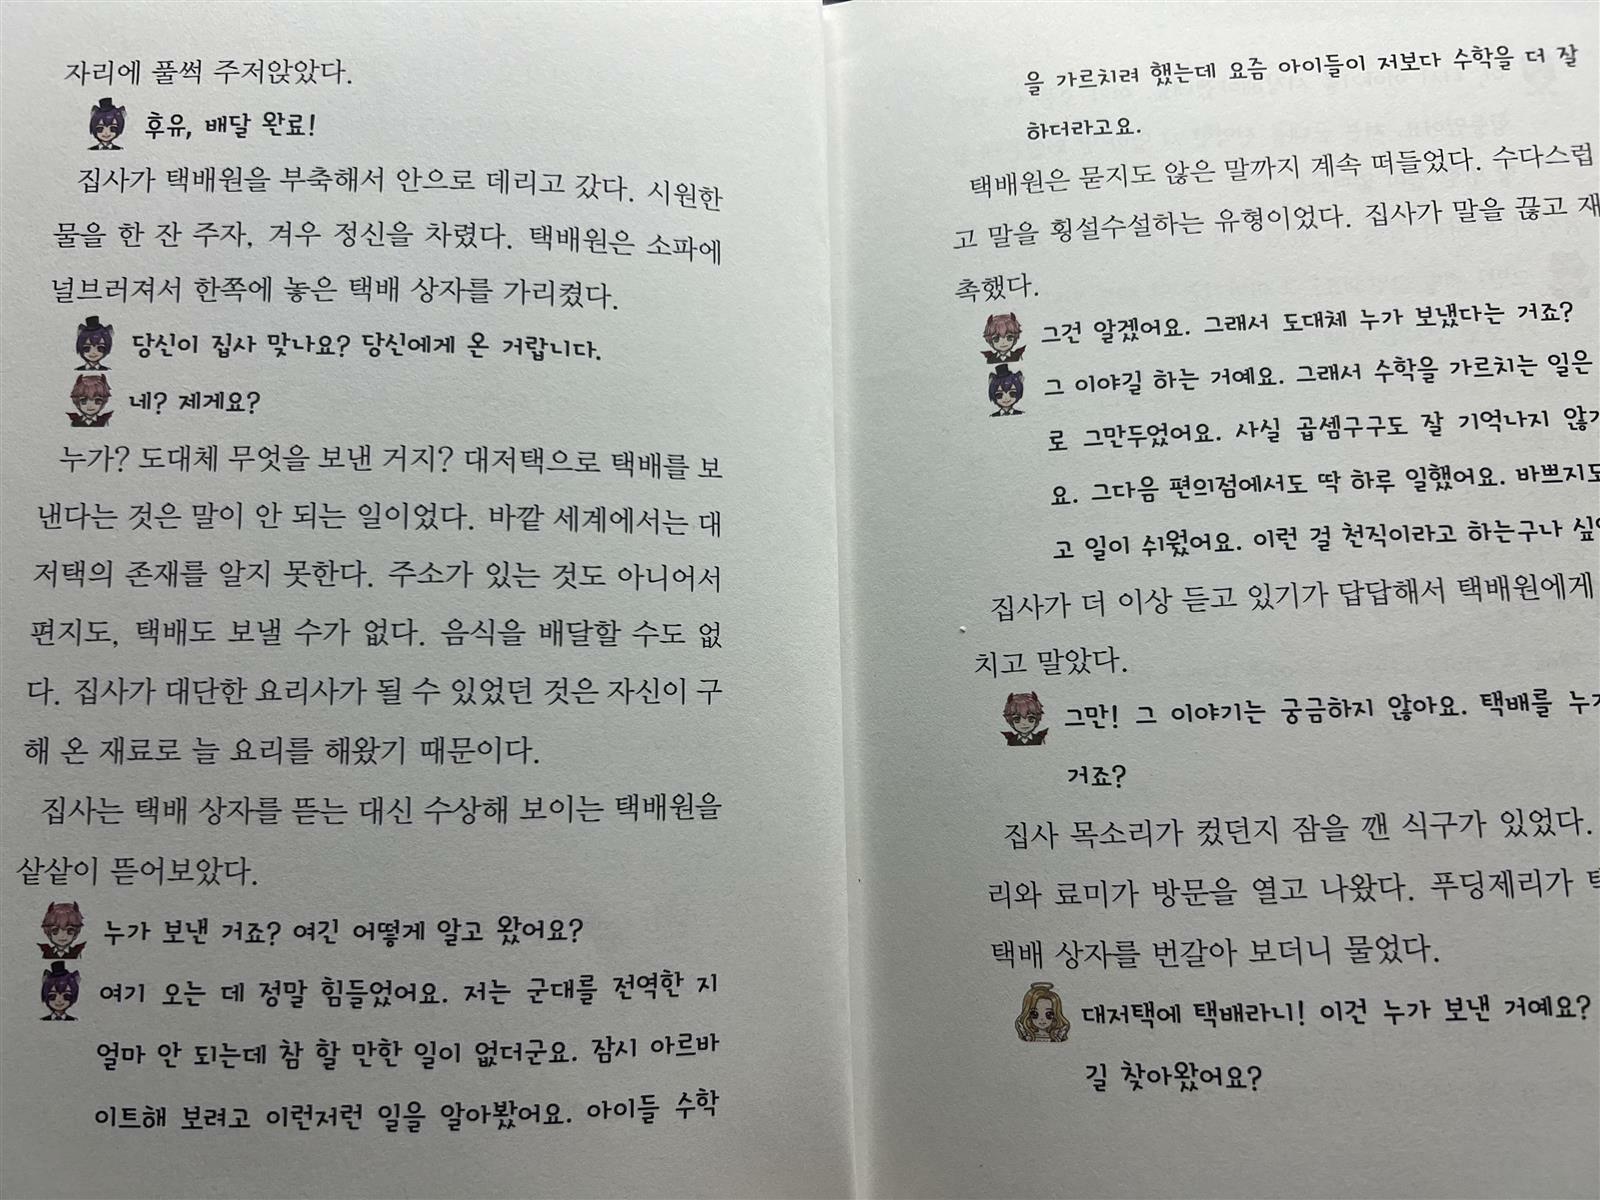 자리에 풀썩 주저앉았다.
후유, 배달 완료!
집사가 택배원을 부축해서 안으로 데리고 갔다. 시원한
물을 한 잔 주자, 겨우 정신을 차렸다. 택배원은 소파에
널브러져서 한쪽에 놓은 택배 상자를 가리켰다.
당신이 집사 맞나요? 당신에게 온 거랍니다.
네? 제게요?
누가? 도대체 무엇을 보낸 거지? 대저택으로 택배를 보
낸다는 것은 말이 안 되는 일이었다. 바깥 세계에서는 대
저택의 존재를 알지 못한다. 주소가 있는 것도 아니어서
편지도, 택배도 보낼 수가 없다. 음식을 배달할 수도 없
다. 집사가 대단한 요리사가 될 수 있었던 것은 자신이 구
해 온 재료로 늘 요리를 해왔기 때문이다.
집사는 택배 상자를 뜯는 대신 수상해 보이는 택배원을
샅샅이 뜯어보았다.
누가 보낸 거죠? 여긴 어떻게 알고 왔어요?
여기 오는 데 정말 힘들었어요. 저는 군대를 전역한 지
얼마 안 되는데 참 할 만한 일이 없더군요. 잠시 아르바
이트해 보려고 이런저런 일을 알아봤어요. 아이들 수학
을 가르치려 했는데 요즘 아이들이 저보다 수학을 더 잘
하더라고요.
택배원은 묻지도 않은 말까지 계속 떠들었다. 수다스럽
고 말을 횡설수설하는 유형이었다. 집사가 말을 끊고 재
촉했다.
그건 알겠어요. 그래서 도대체 누가 보냈다는 거죠?
그 이야길 하는 거예요. 그래서 수학을 가르치는 일은
로 그만두었어요. 사실 곱셈구구도 잘 기억나지 않
요. 그다음 편의점에서도 딱 하루 일했어요. 바쁘지도
고 일이 쉬웠어요. 이런 걸 천직이라고 하는구나
집사가 더 이상 듣고 있기가 답답해서 택배원에게
치고 말았다.
그만! 그 이야기는 궁금하지 않아요. 택배를
거죠?
집사 목소리가 컸던지 잠을 깬 식구가 있었다.
리와 료미가 방문을 열고 나왔다. 푸딩제리가
택배 상자를 번갈아 보더니 물었다.
대저택에 택배라니! 이건 누가 보낸 거예요?
길 찾아왔어요?